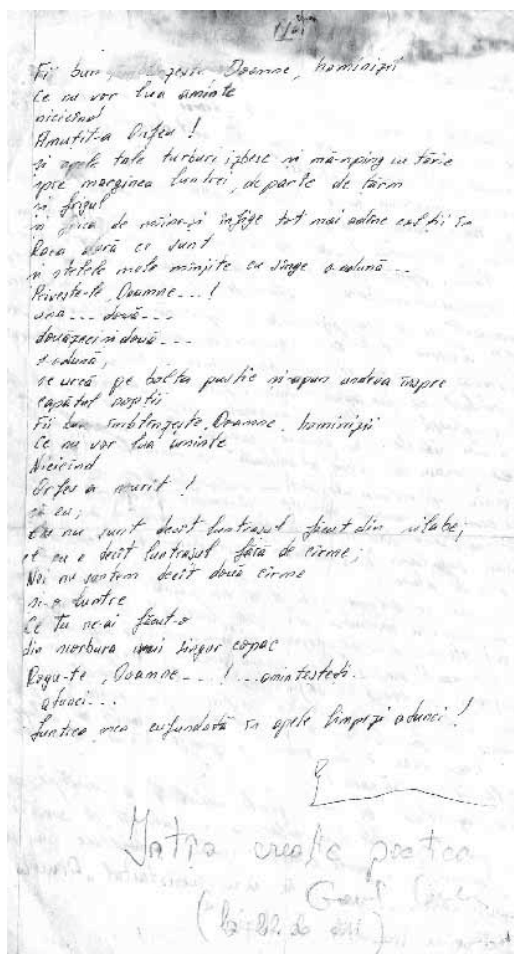 Fii bun, Doamne, hominizii
Ce nu vor lua aminte
nicicînd
Amuțit-a Orfeu !
și apele tale turburi izbesc și mă-mping cu tărie
spre marginea luntrei, departe de țărm
și frigul
și frica de mîine-și înfige tot mai adînc colții în
vara ce sunt
și stelele mele mînjite cu sînge s-adună...
Privește-le, Doamne...!
una... două...
douăzeci și două...
s-adună,
se urcă pe bolta pustie și-apun undeva înspre
capătul nopții
Fii bun îmblînzește, Doamne, hominizii
Ce nu vor lua aminte
Nicicînd
Orfeu a murit !
și eu,
Eu nu sunt decît luntrașul făcut din silabe;
el nu e decît luntrașul fără de cîrme;
Noi nu suntem decît două cîrme
și-o luntre
Ce tu ne-ai făcut-o
din singur copac
Rogu-te, Doamne...!
atunci...
Luntrea mea cufundată în apele limpezi adînci !
Intîia creație poetică
(la 22 de ani)